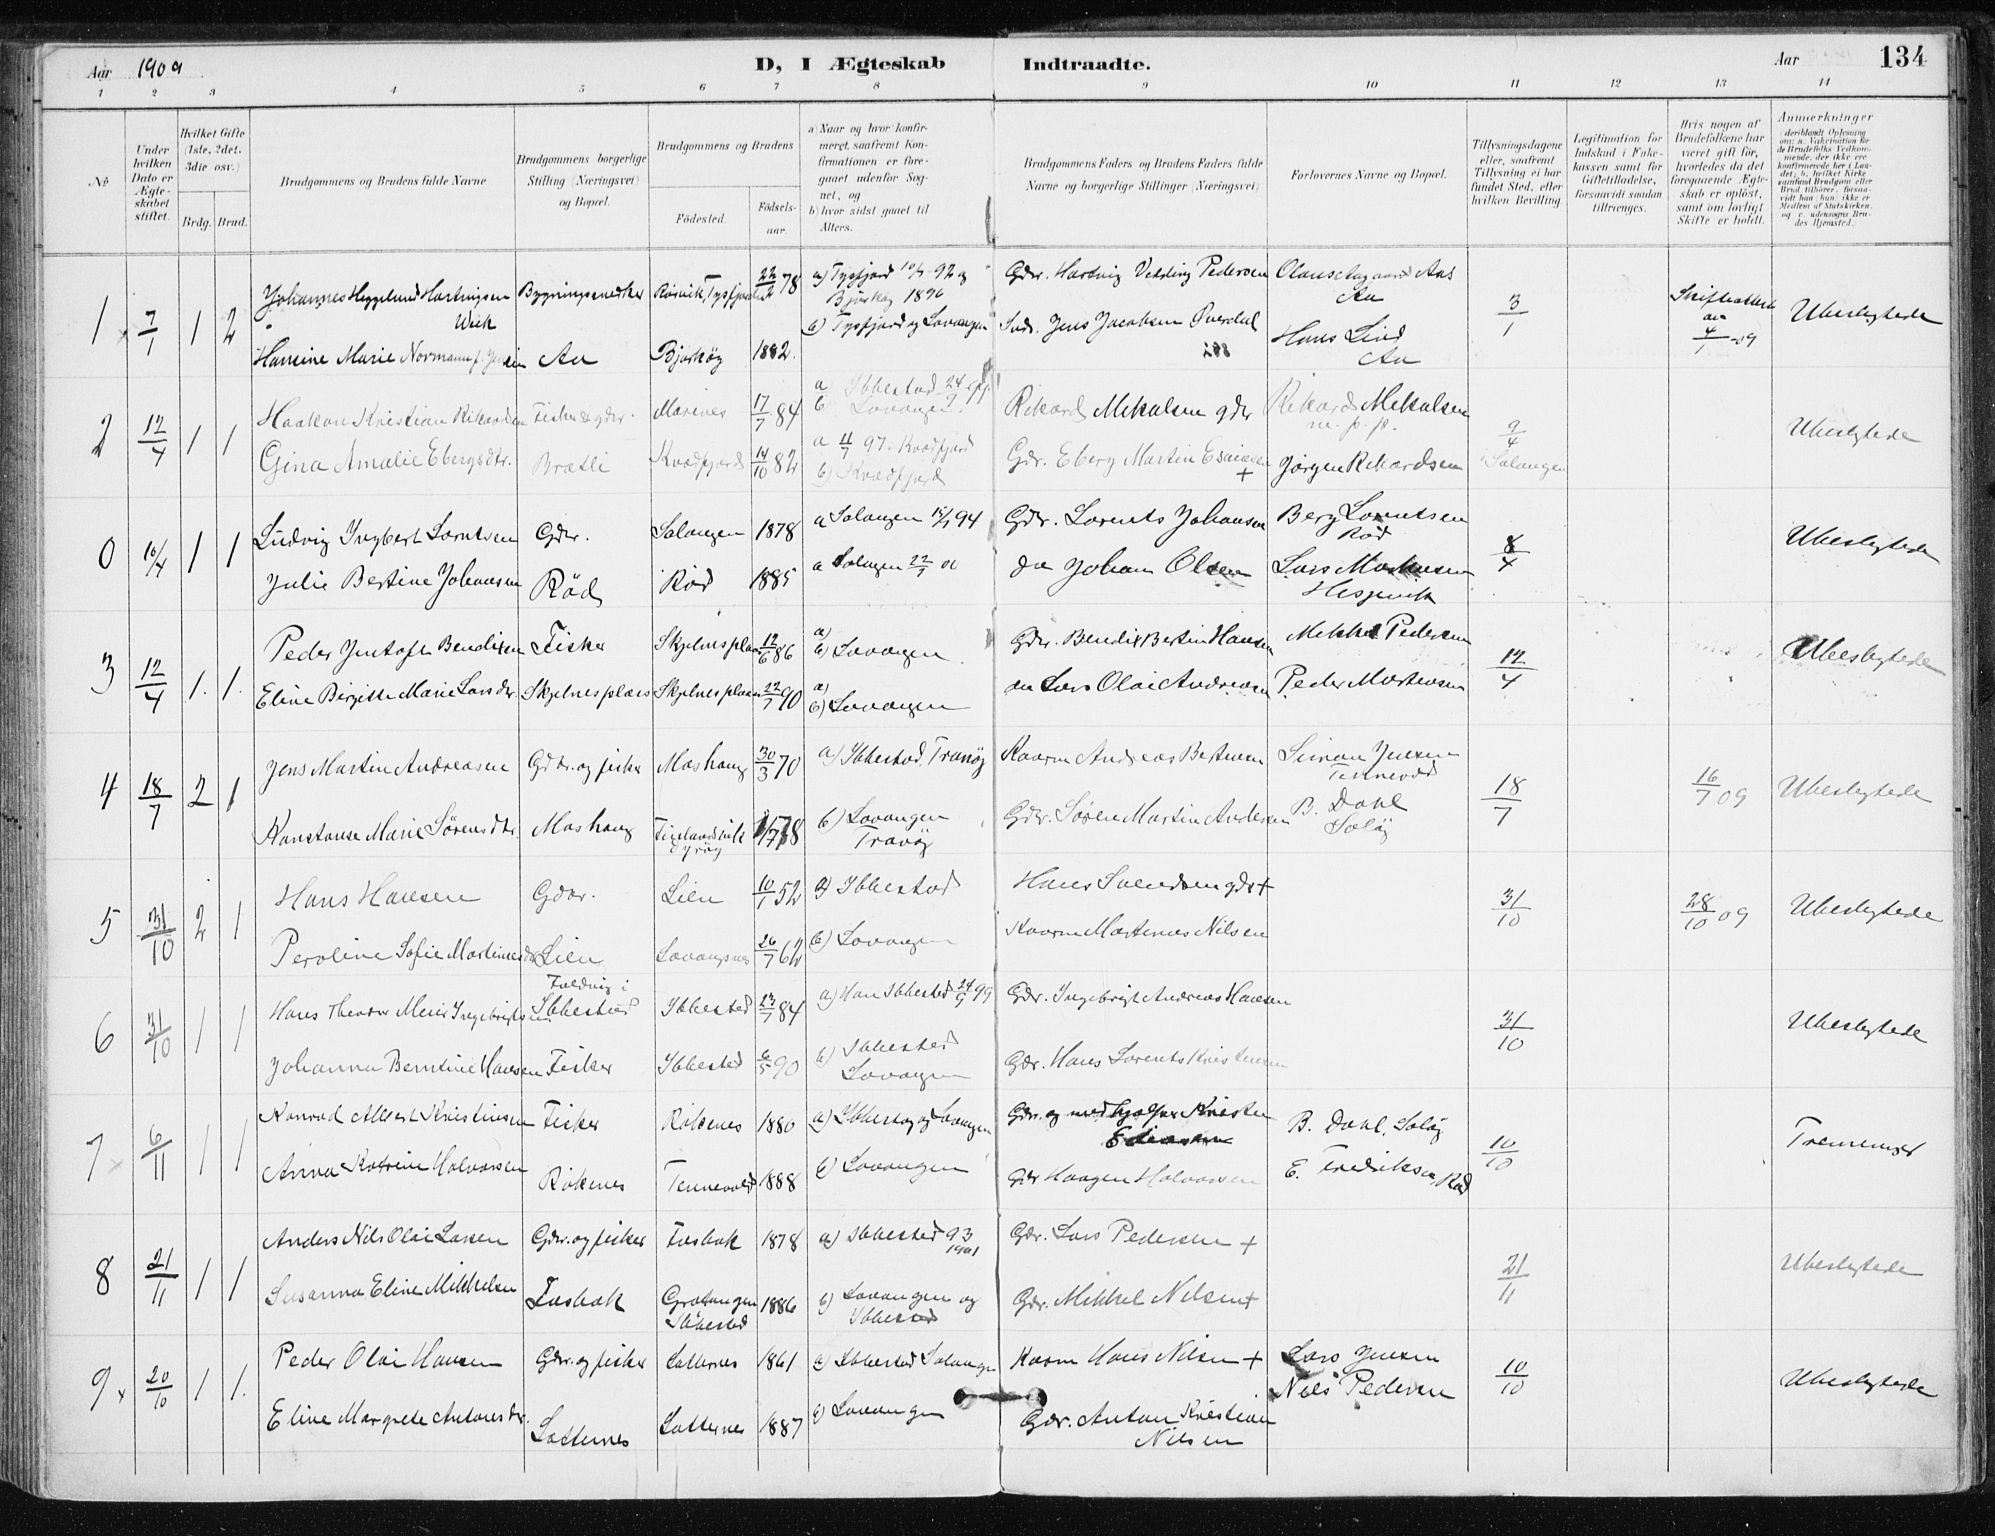 Aar 1909
D, I Ægteskab Indtraadte.
Aar 134
1 2 3 4 5 6 7 8 9 10 11 12 13 14
No
Under hvilken Dato er Ægteskabet stiftet.
Hvilket Gifte (1ste, 2det, 3die osv.)
Brdg. Brud.
Brudgommens og Brudens fulde Navne
Brudgommens borgerlige Stilling (Næringsvei) og Bopæl.
Brudgommens og Brudens
Fødested.
Fødselsaar.
a) Naar og hvor konfirmeret, saafremt Konfirmationen er foregaaet udenfor Sognet, og
b) hvor sidst gaaet til Alters.
Brudgommens Faders og Brudens Faders fulde Navne og borgerlige Stillinger (Næringsvei).
Forlovernes Navne og Bopæl.
Tillysningsdagene eller, saafremt Tillysning ei har fundet Sted, efter hvilken Bevilling.
Legitimation for Indskud i Enkekassen samt for Giftetilladelse, forsaavidt saadan tiltrænges.
Hvis nogen af Brudefolkene har været gift før, hvorledes da det foregaaende Ægteskab er opløst, samt om lovligt Skifte er holdt.
Anmerkninger
1 7/1 1 2
Johannes Heggelund Hartvigsen Wiik
Bygningssnedker Rørvik, Tysfjord 22/2 78
a) Tysfjord 10/7 92 og Bjarkøy 1896
Gdr. Hartvig Vedding Pedersen
Aas
Aa
3/1
Skifteattest av 4/1 -09
Ubeslegtede
Hansine Marie Normann f. Jensen
Aa Bjarkøy 1882.
b) Tysfjord og Lavangen
Jens Jacobsen Øverdal
Hans Lind
Aa
2 12/4 1 1
Haakon Kristian Rikardsen
Fisker & gdr. 17/7 84
a Ibbestad 24/9
b Lavangen
Rikard Mikalsen gdr
Rikard Mikalsen
m. p. p.
9/4
Salangen
Ubeslegtede
Gina Amalie Ebergsdtr.
Bratli Kvædfjord 14/10 82
a 11/7 97. Kvædfjord
b) Kvædfjord
Gdr. Eberg Martin Esaiasen +
Jørgen Rikardsen
0 10/4 1 1
Ludvig Ingbert Lorntsen
Gdr. Salangen 1878
a Salangen 15/7 94
Gdr. Lorents Johansen
Berg Lorntsen
Rød
8/4
Ubeslegtede
Julie Bertine Johansen
Rød Rød 1885
a Salangen 22/7 00
do Johan Olsen
Lars
3 12/4 1. 1.
Peder Gustaf Bendixen
Fisker Skjelnesplads 12/6 86
a)
b) Lavangen
Gdr. Bendix Bertin Hansen
Mikkel Pedersen
12/4
Ubeslegtede
Eline Birgitte Marie Larsdtr
Skjelnesplads Skjelnesplads 22/7 90
a)
b) Lavangen
Lars Olai Andreasen
Peder Mortensen
4 18/7 2 1
Jens Martin Andreasen
Gdr. og fisker Moshaug 30/3 70
a) Ibbestad, Tranøy
Kaarm Andreas Bertheusen
Simon Jensen
Tennevold
18/7
16/7 09
Ubeslegtede
Konstanse Marie Sørensdtr.
Moshaug Finlandsvik Dyrøy
b) Lavangen
Tranøy
Gdr. Søren Martin Andersen
B. Dahl
Soløy
5 31/10 2 1
Hans Hansen
Gdbr. Lien 10/1 52
a) Ibbestad
Hans Svendsen gdr +
31/10
28/10 09
Ubeslegtede
Peroline Sofie Martinesdtr
Lien Lavangsnes 26/7 62
b) Lavangen
Kaarm Martinus Nilsen
6 31/10 1 1
Hans Theodor Meier Ingebrigtsen
Foldvig i Ibbestad Ibbestad 23/7 84
a) Han Ibbestad 24/9 99
Gdr. Ingebrigt Andreas Hansen
31/10
Ubeslegtede
Johanna Berntine Hansen
Fisker Ibbestad 6/5 90
b) Ibbestad
Lavangen
Gdr. Hans Lorents Kristensen
7 6/11 1 1
Konrad Albert Kristensen
Fisker Røkenes 1880
a) Ibbestad og Lavangen
Gdr. og medhjelper Kristen
B. Dahl, Soløy
10/10
Tremenner
Anna Katrine Halvorsen
Røkenes Tennevold 1888
b) Lavangen
Gdr Haagen Halvorsen
E. Fredriksen, Rød
8 21/11 1 1
Anders Nils Olai Larsen
Gdr. og fisker Fosbak 1878
a) Ibbestad 93
1901
Gdr. Lars Pedersen +
21/11
Ubeslegtede
Susanna Eline Mikkelsen
Fosbak Gratangen Ibbestad 1886
b) Lavangen og Ibbestad
Gdr. Mikkel Nilsen +
9 20/10 1 1.
Peder Olai Hansen
Gdr. og fisker Løtternes 1861
a) Ibbestad Salangen
Kaarm Hans Nilsen +
Lars Jensen
10/10
Ubeslegtede
Eline Margrete Antonsdtr.
Løtternes Løtternes 1887
b) Lavangen
Gdr. Anton Kristian Nilsen
Nils Pedersen